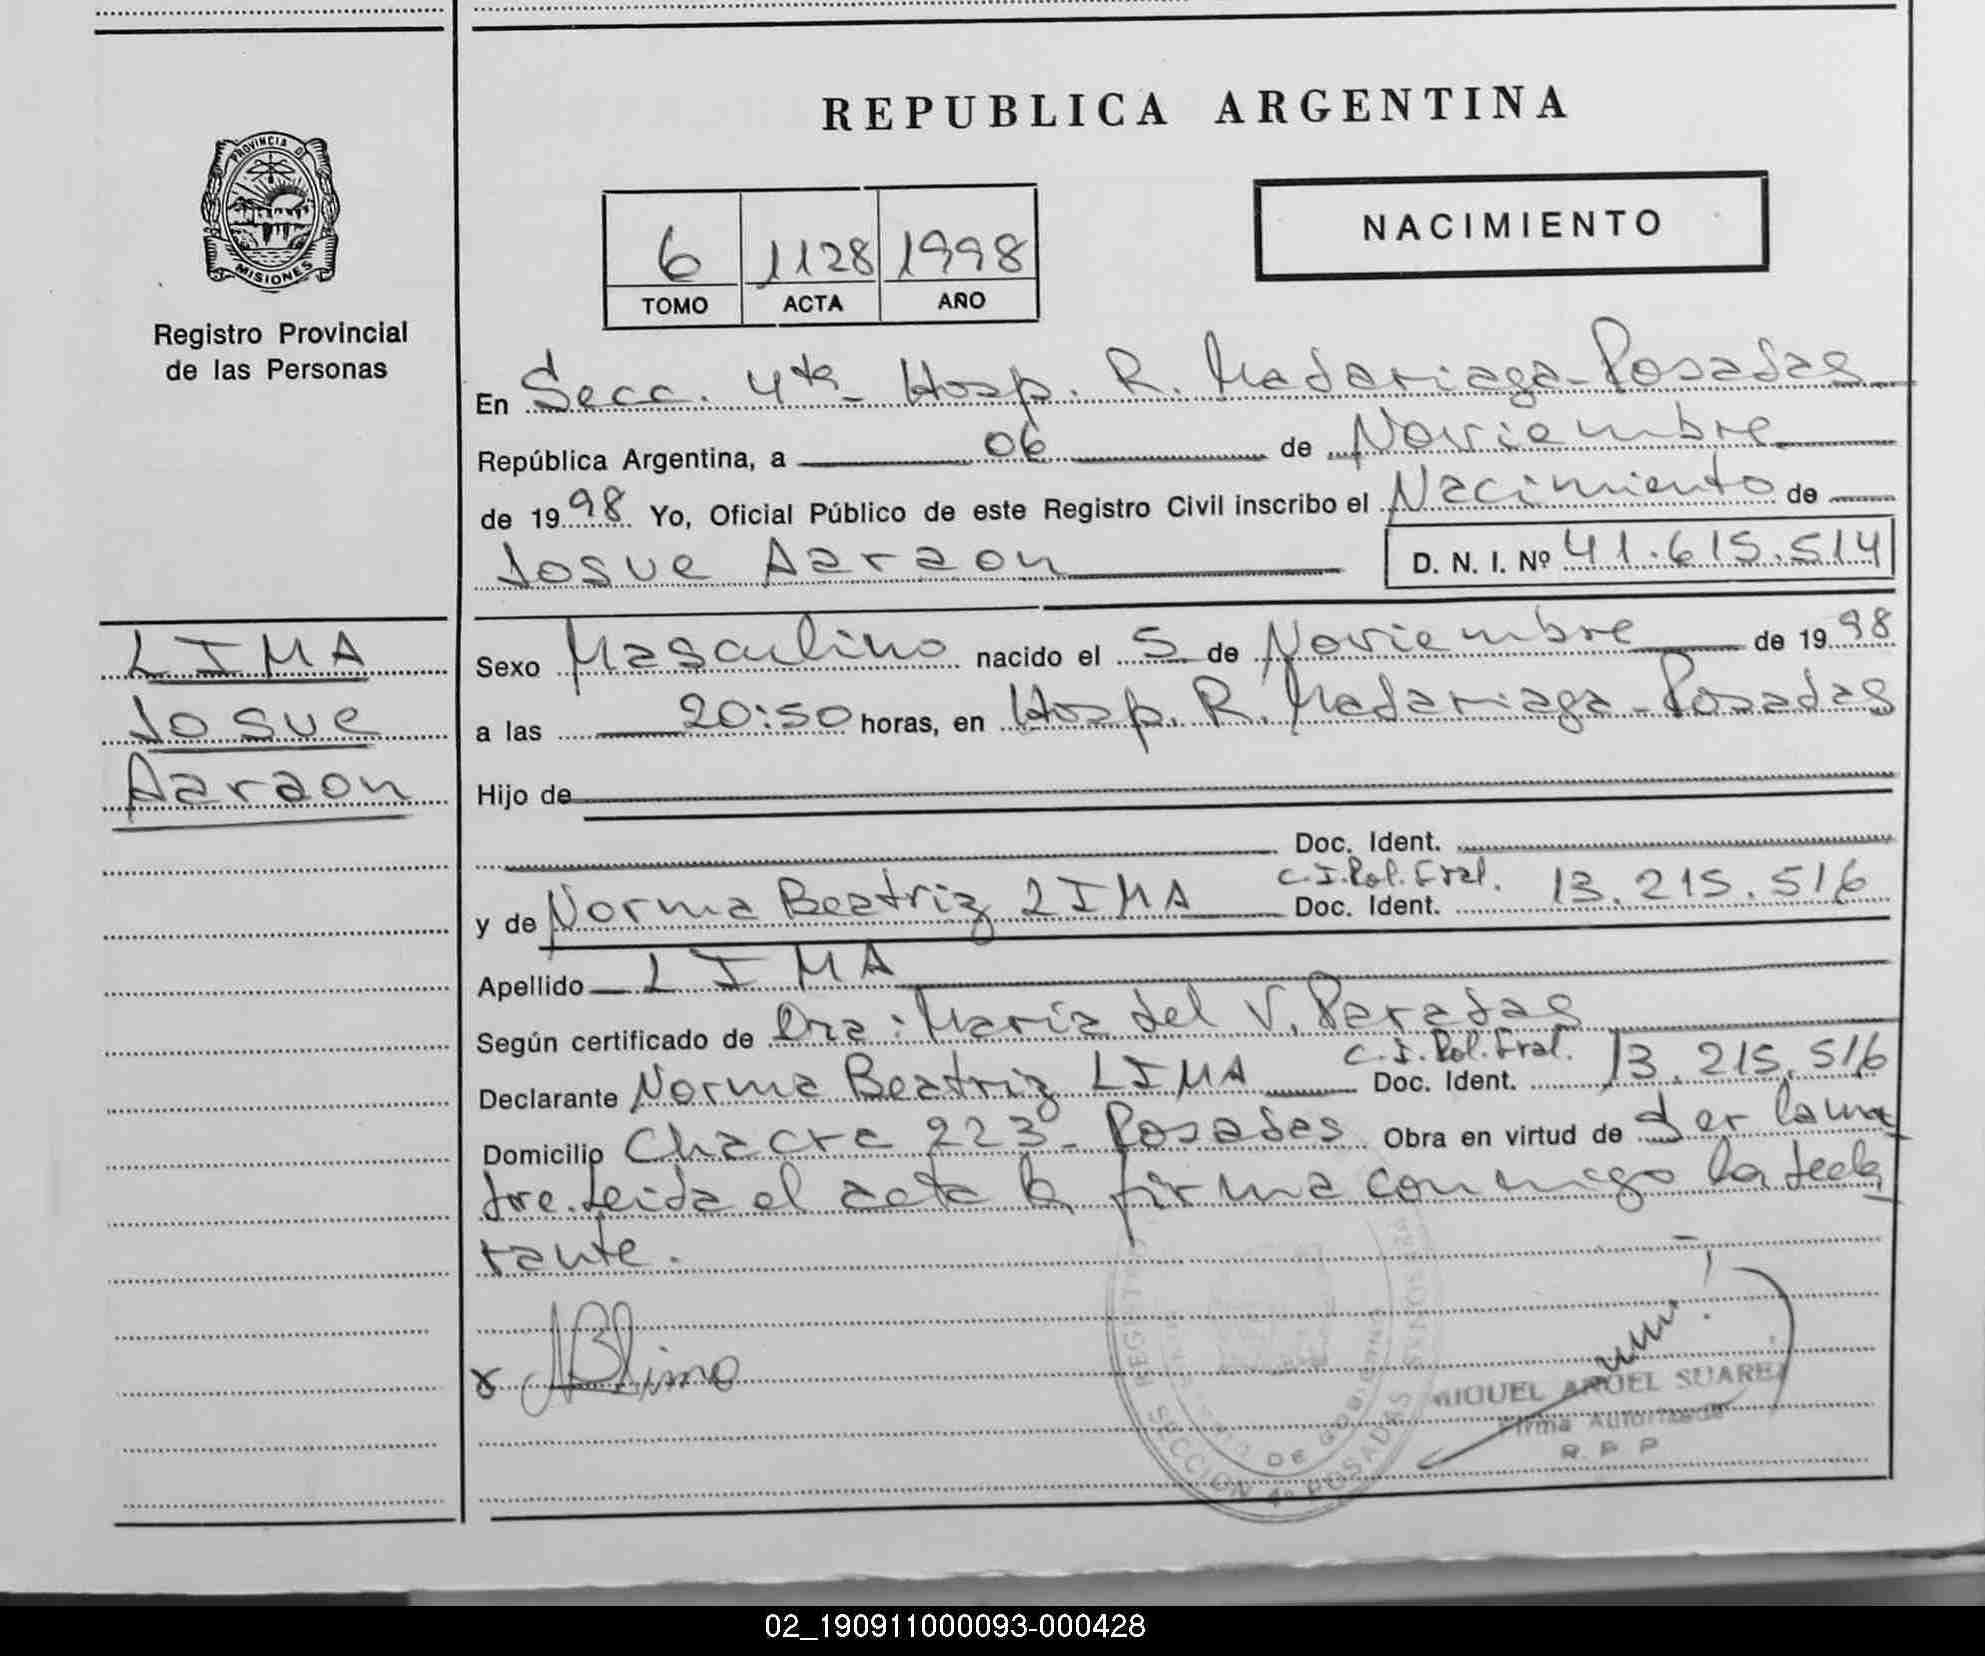 REPUBLICA ARGENTINA
PROVINCIA DE
MISIONES
Registro Provincial
de las Personas
6 1128 1998
TOMO ACTA AÑO
NACIMIENTO
En Secc. 4ta - Hosp. R. Madariaga - Posadas
República Argentina, a 06 de Noviembre
de 1998 Yo, Oficial Público de este Registro Civil inscribo el Nacimiento de
Josue Aaraon D. N. I. Nº 41.615.514
LIMA
Josue
Aaraon
Sexo Masculino nacido el 5 de Noviembre de 1998
a las 20:50 horas, en Hosp. R. Madariaga - Posadas
Hijo de
Doc. Ident.
C.I. Pol. Fral.
y de Norma Beatriz LIMA Doc. Ident. 13.215.516
Apellido LIMA
Según certificado de Dra: María del V. Paradas
C.I. Pol. Fral.
Declarante Norma Beatriz LIMA Doc. Ident. 13.215.516
Domicilio Chacra 223 - Posadas Obra en virtud de Ser la ma
dre. Leida el acta la firma conmigo la decla
rante.
x NBLima
MIGUEL ANGEL SUAREZ
Firma Autorizada
R. P. P
SECCION 4º POSADAS
02_190911000093-000428